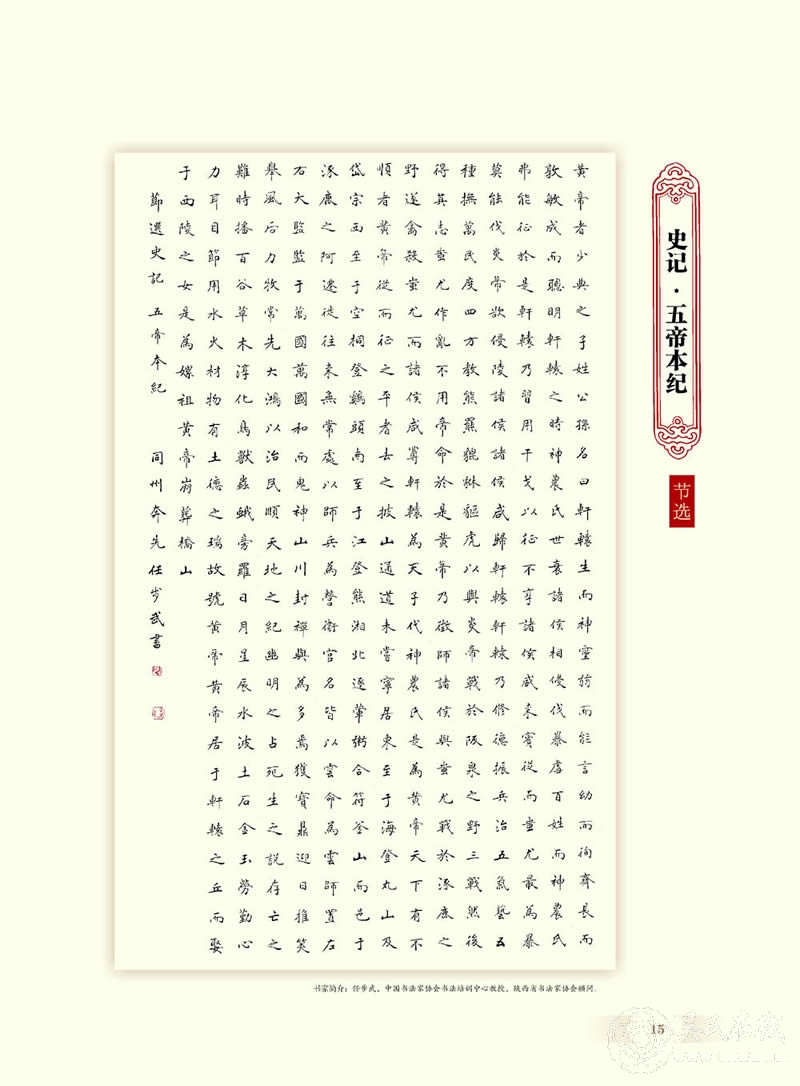 史记·五帝本纪
节选
黄帝者少典之子姓公孫名曰軒轅生而神靈弱而能言幼而徇齊長而
敦敏成而聰明軒轅之時神農氏世衰諸侯相侵伐暴虐百姓而神農氏
弗能征於是軒轅乃習用干戈以征不享諸侯咸来賓從而蚩尤最為暴
莫能伐炎帝欲侵陵諸侯諸侯咸歸軒轅軒轅乃修德振兵治五氣藝五
種撫萬民度四方教熊羆貔貅貙虎以與炎帝戰於阪泉之野三戰然後
得其志蚩尤作亂不用帝命於是黄帝乃徵師諸侯與蚩尤戰於涿鹿之
野遂禽殺蚩尤而諸侯咸尊軒轅為天子代神農氏是為黄帝天下有不
順者黄帝從而征之平者去之披山通道未嘗寧居東至于海登丸山及
岱宗西至于空桐登鷄頭南至于江登熊湘北逐葷粥合符釜山而邑于
涿鹿之阿遷徙往来無常處以師兵為營衛官名皆以雲命為雲師置左
右大監監于萬國萬國和而鬼神山川封禪與為多焉獲寶鼎迎日推筴
舉風后力牧常先大鴻以治民順天地之紀幽明之占死生之説存亡之
難時播百谷草木淳化鳥獸蟲蛾旁羅日月星辰水波土石金玉勞勤心
力耳目節用水火材物有土德之瑞故號黄帝黄帝居于軒轅之丘而娶
于西陵之女是為嫘祖黄帝崩葬橋山
節選史記 五帝本紀 同州奔先任步武書
书家简介：任步武，中国书法家协会书法培训中心教授，陕西省书法家协会顾问。
15